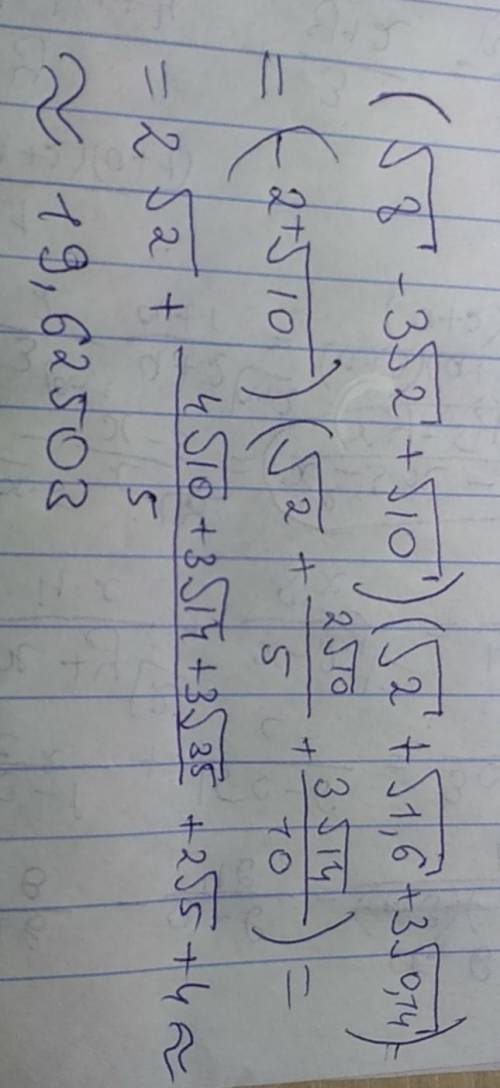 (√8 - 3√2 + √10)(√2 + √1,6 + 3√0,14) =
= (2+√10)(√2 + 2√10/5 + 3√14/10) =
= 2√2 + (4√10 + 3√14 + 3√35)/5 + 2√5 + 4 ≈
≈ 19,62503